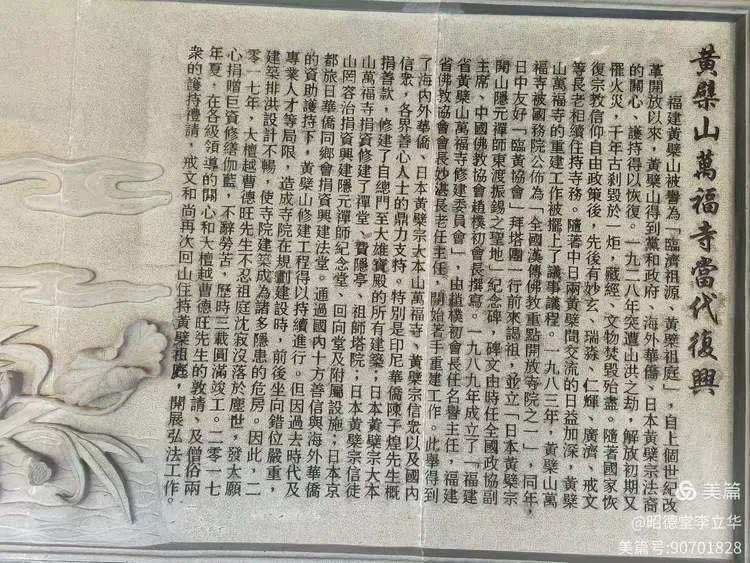 黃檗山萬福寺當代復興
福建黃檗山被譽為「臨濟祖源、黃檗祖庭」，自上個世紀改
革開放以來，黃檗山得到黨和政府、海外華僑、日本黃檗宗法裔
的關心、護持得以恢復。一九二八年突遭山洪之劫，解放初期又
罹火災，千年古剎毀於一炬，藏經、文物焚毀殆盡。隨著國家恢
復宗教信仰自由政策後，先後有妙玄、瑞淼、仁輝、廣濟、戒文
等長老相續住持寺務。隨著中日兩黃檗間交流的日益加深，黃檗
山萬福寺的重建工作被擺上了議事議程。一九八三年，黃檗山萬
福寺被國務院公佈為「全國漢傳佛教重點開放寺院之一」，同年，
日中友好「臨黃協會」拜塔團一行前來謁祖，並立「日本黃檗宗
開山隱元禪師東渡振錫之聖地」紀念碑，碑文由時任全國政協副
主席、中國佛教協會趙樸初會長撰寫。一九八九年成立了「福建
省黃檗山萬福寺修建委員會」，由趙樸初會長任名譽主任、福建
省佛教協會會長妙湛長老任主任，開始著手重建工作。此舉得到
了海內外華僑、日本黃檗宗大本山萬福寺、黃檗宗信眾以及國內
信眾，各界善心人士的鼎力支持。特別是印尼華僑陳子煌先生概
捐善款，修建了自總門至大雄寶殿的所有建築；日本黃檗宗大本
山萬福寺捐資修建了禪堂、費隱亭、祖師塔院；日本黃檗宗信徒
山罔容治捐資興建隱元禪師紀念堂、回向堂及附屬設施；日本京
都旅日華僑同鄉會捐資興建法堂。通過國內十方善信與海外華僑
的資助護持下，黃檗山修建工程得以持續進行。但因過去時代及
專業人才等局限，造成寺院在規劃建設時，前後坐向錯位嚴重，
建築排洪設計不暢，使寺院建築成為諸多隱患的危房。因此，二
零一七年，大檀越曹德旺先生不忍祖庭沈寂沒落於塵世，發大願
心捐贈巨資修繕伽藍，不辭勞苦，歷時三載圓滿竣工。二零一七
年夏，在各級領導的關心和大檀越曹德旺先生的敦請、及僧俗兩
衆的護持禮請，戒文和尚再次回山住持黃檗祖庭，開展弘法工作。
美篇
@昭德堂李立华
美篇号:90701828